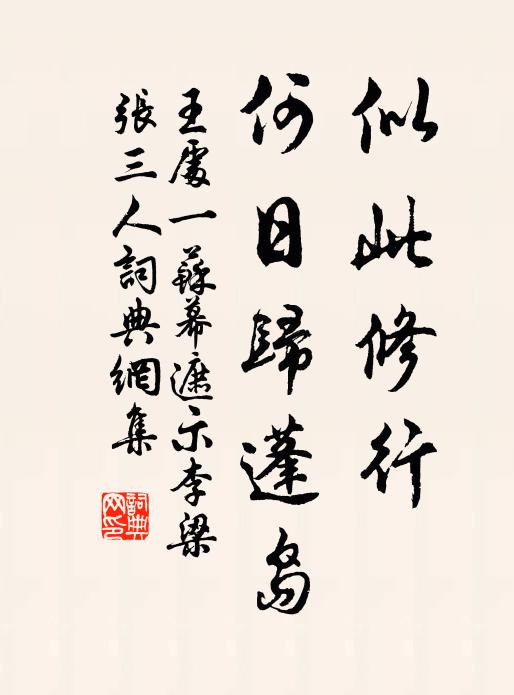 似此修行
何日歸蓬島
王處一蘇幕遮示李梁
張三人詞典網集
詞典网印